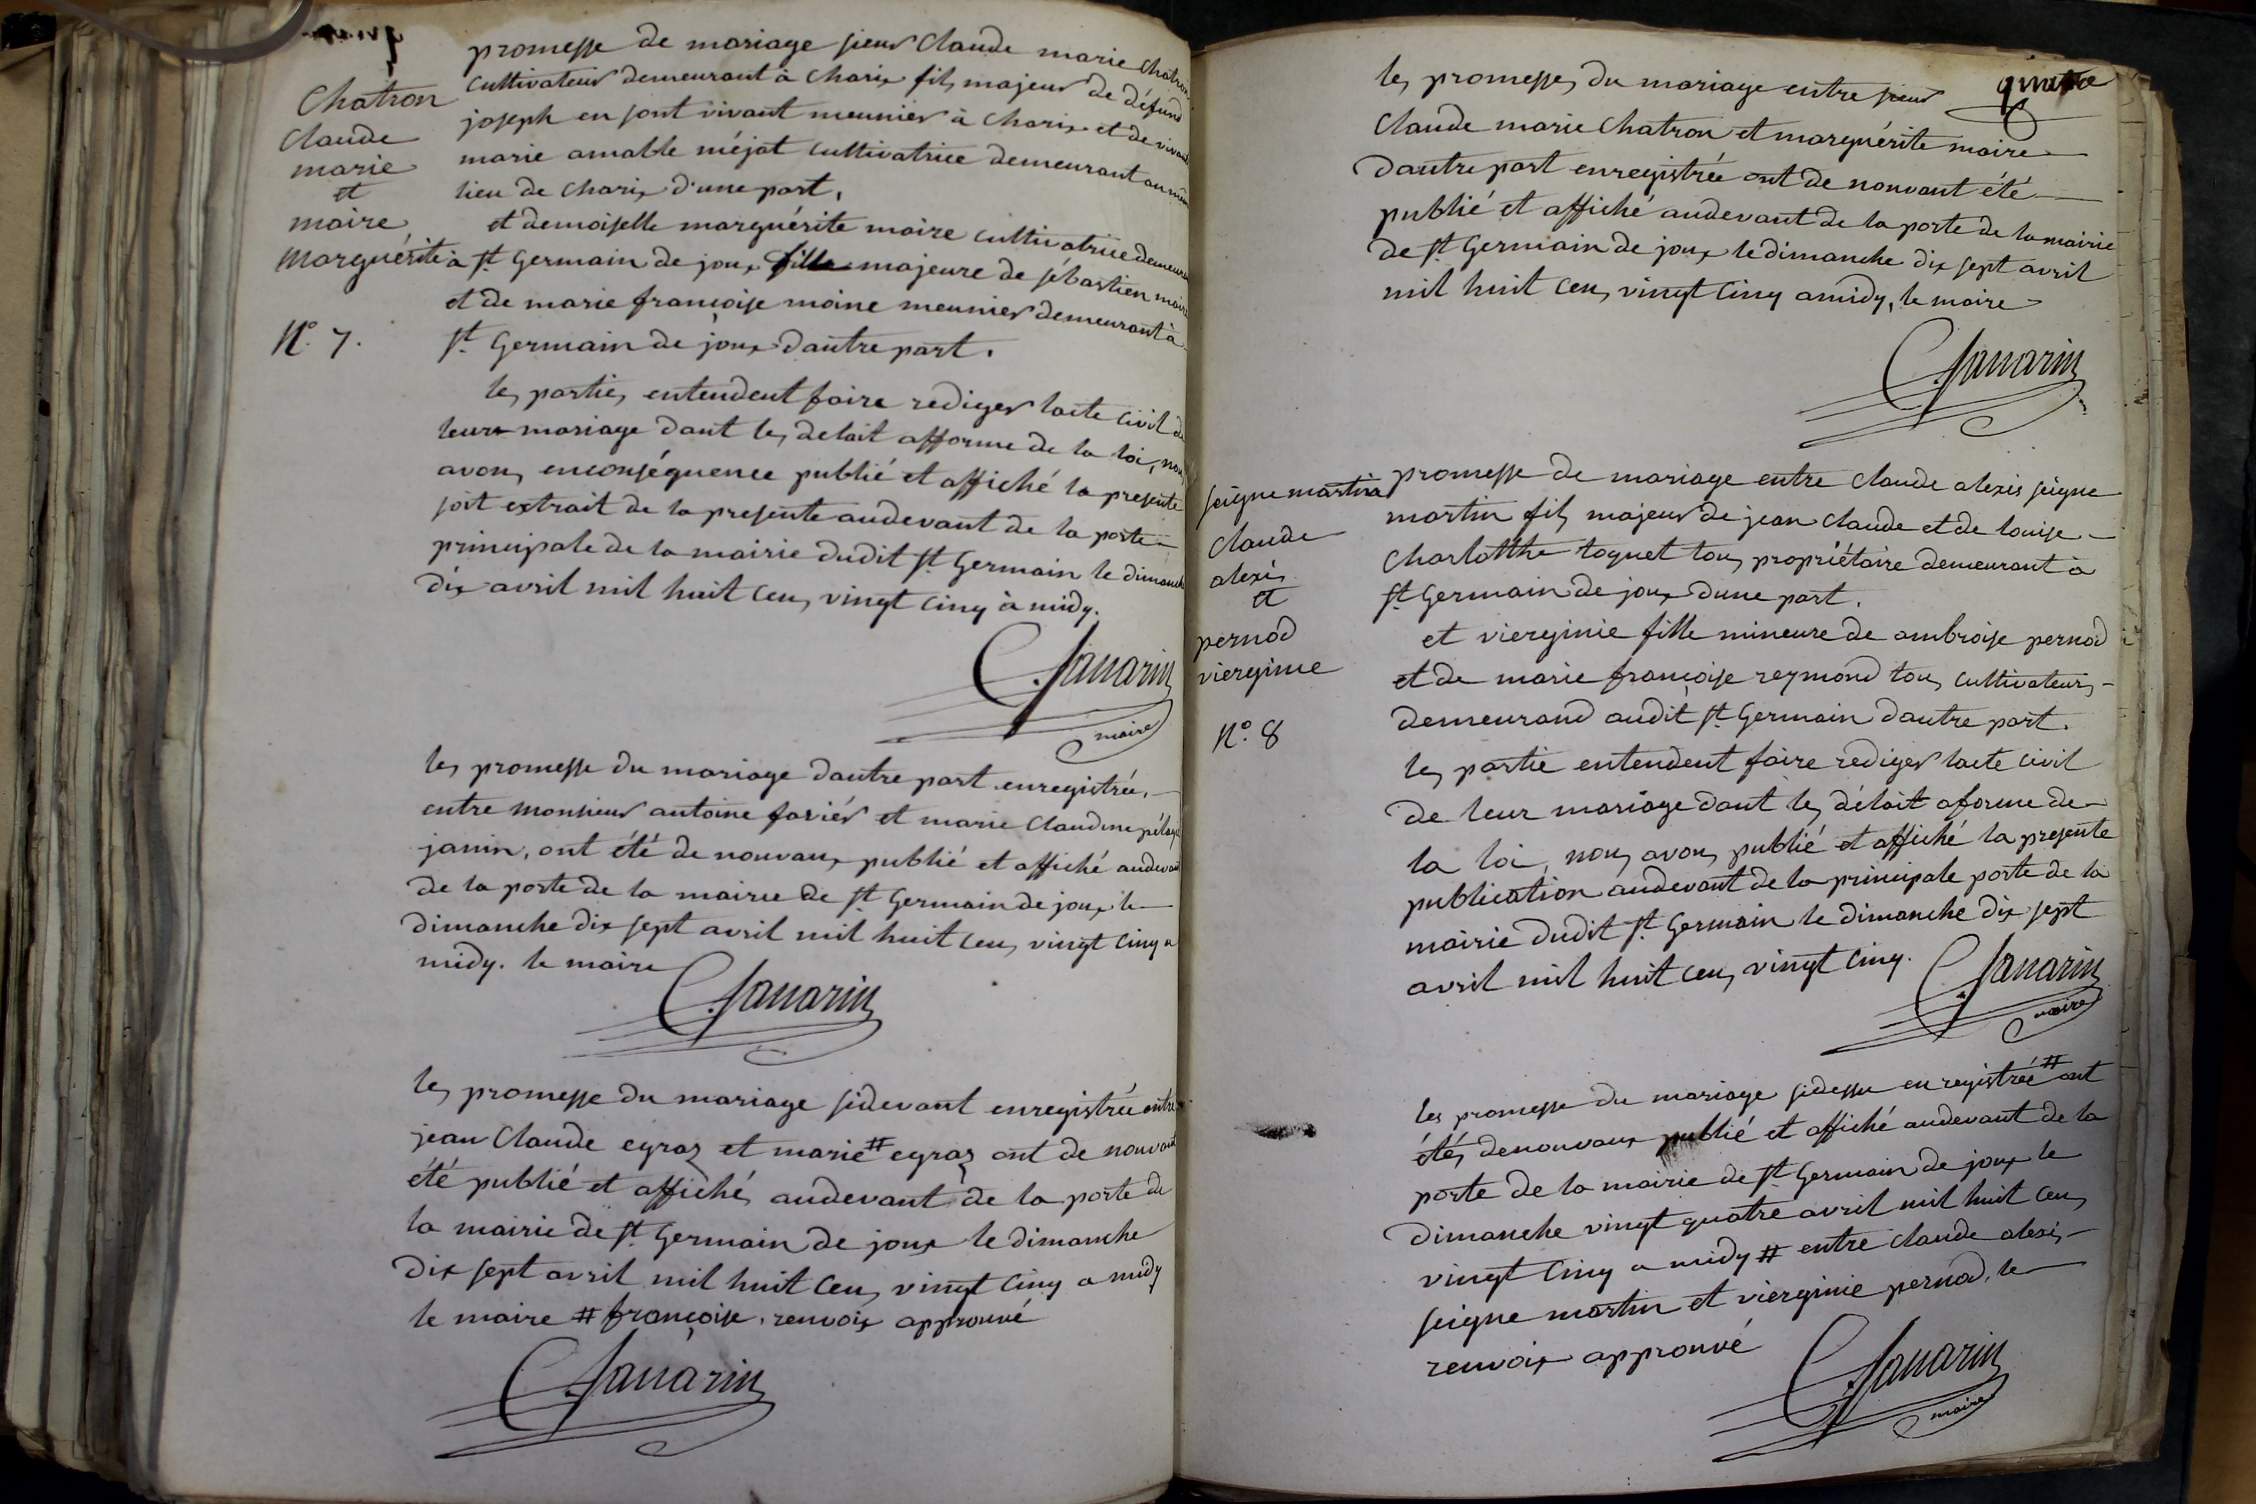 promesse de mariage sieur Claude marie Chatron
Chatron
Claude
marie
et
maire
Marguérite
N.° 7.
cultivateur demeurant à Charix fils majeur de défund
joseph en sont vivant meunier à Charix et de vivante
marie amable méjat cultivatrice demeurant au même
lieu de charix d'une part,
et demoiselle marguérite maire cultivatrice demeurant
à St. Germain de joux fille majeure de sébastien maire
et de marie françoise moine meunier demeurant à
St. Germain de joux dautre part.
les parties entendent faire rediger lacte civil de
leur mariage dant les delait afforme de la loi, nous
avons enconséquence publié et affiché la presente
soit extrait de la presente audevant de la porte
principale de la mairie dudit St. Germain le dimanche
dix avril mil huit cens vingt cinq à midy.
C. Savarin
maire
les promesse du mariage dautre part enregistrée,
entre monsieur antoine favier et marie Claudine pélagie
janin, ont été de nouvaux publié et affiché audevant
de la porte de la mairie de St. Germain de joux le
dimanche dix sept avril mil huit cens vingt cinq a
midy. le maire
C. Savarin
les promesse du mariage sidevant enregistrée entre
jean Claude egraz et marie # egraz ont de nouvaut
été publié et affiché audevant de la porte de
la mairie de St. Germain de joux le dimanche
dix sept avril mil huit cens vingt cinq a midy
le maire # françoise. renvoix approuvé
C. Savarin
quatre
les promesses du mariage entre sieur
Claude marie Chatron et marguérite maire
dautre part enregistrée ont de nouvaut été
publié et affiché audevant de la porte de la mairie
de St. Germain de joux le dimanche dix sept avril
mil huit cens vingt cinq a midy, le maire
C. Savarin
seigne martin
Claude
alexis
et
pernod
vierginie
N.° 8
promesse de mariage entre Claude alexis seigne
martin fils majeur de jean Claude et de louise
Charlotthe toquet tous propriétaire demeurant à
St. Germain de joux dune part.
et vierginie fille mineure de ambroise pernod
et de marie françoise reymond tous cultivateurs
demeurand audit St. Germain dautre part.
les partie entendent faire rediger lacte civil
de leur mariage dant les délait aforme de
la loi, nous avons publié et affiché la presente
publication audevant de la principale porte de la
mairie dudit St. Germain le dimanche dix sept
avril mil huit cens vingt cinq.
C. Savarin
maire
les promesse du mariage sidessu enregistrée # ont
étés denouvaux publié et affiché audevant de la
porte de la mairie de St. Germain de joux le
dimanche vingt quatre avril mil huit cens
vingt cinq a midy # entre claude alexis
seigne martin et vierginie pernod. le
renvoix approuvé
C. Savarin
maire